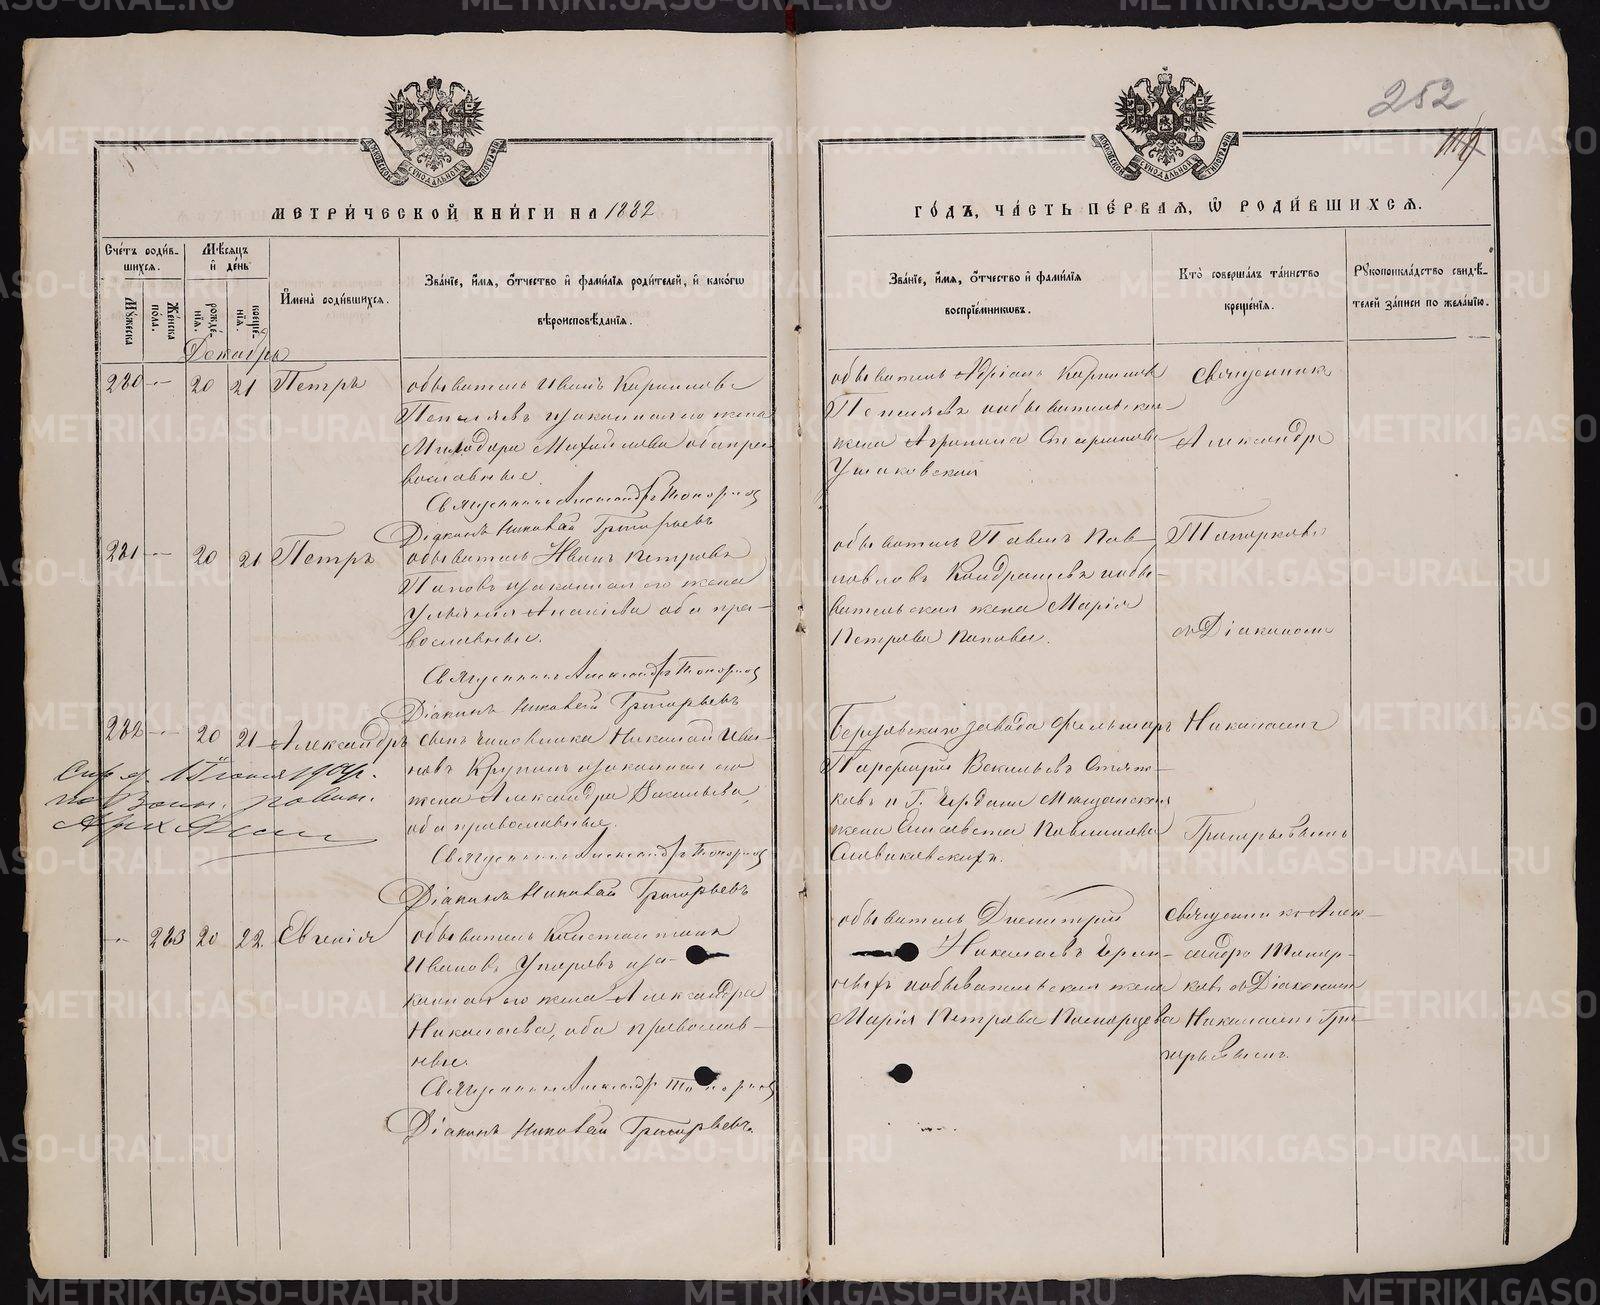 252
МЕТРИ́ЧЕСКОЙ КНИ́ГИ НА 1882
ГО́ДЪ, ЧА́СТЬ ПЕ́РВАЯ, Ѡ РОДИ́ВШИХСЯ.
Сче́тъ роди́в-
шихся.
Му́жеска
Же́нска
по́ла.
Мѣ́сяцъ
и де́нь
рожде́-
нїя.
креще́-
нїя.
И҆мена̀ роди́вшихся.
Зва́нїе, и҆́мя, ѻ҆́тчество и҆ фами́лїя роди́телей, и҆ како́гѡ
вѣроисповѣ́данїя.
Зва́нїе, и҆́мя, ѻ҆́тчество и҆ фами́лїя
воспрїе́мникѡвъ.
Кто̀ соверша́лъ та́инство
креще́нїя.
Рꙋкоприкла́дство свидѣ́-
телей за́писи по жела́нїю.
Декабрь
280 20 21 Петръ
обыватель Иванъ Кориилова
Пепеляевъ и законная его жена
Михайлова оба пра-
вославные.
Священникъ Александръ Топорковъ
Діаконъ Николай Григорьевъ
обыватель Адріанъ
Пепеляевъ и обывательская
жена Агрипина
Ушаковская
Священникъ
Александръ
281 20 21 Петръ
обыватель Иванъ Петровъ
Поповъ и законная его жена
Ульянія Ананіева оба пра-
вославные.
Священникъ Александръ Топорковъ
Діаконъ Николай Григорьевъ
обыватель Павелъ Пав-
ловъ Кондрашевъ и обы-
вательская жена Марія
Петрова Попова.
Топорковъ
съ Діакономъ
282 20 21 Александръ
сынъ чиновника Николая Ива-
новъ Крупинъ и законная его
жена Александра Васильева,
оба православные.
Священникъ Александръ Топорковъ
Діаконъ Николай Григорьевъ
Березовскаго завода фельдшеръ
Порфирій Васильевъ
и Г. мѣщанская
жена Елисавета Павлинова
Николаемъ
Григорьевымъ
283 20 22 Евгенія
обыватель Константинъ
Ивановъ и за-
конная его жена Александра
Николаева, оба православ-
ные.
Священникъ Александръ Топорковъ
Діаконъ Николай Григорьевъ.
обыватель Димитрій
Николаевъ
и обывательская жена
Марія Петрова
Священникъ Алек-
сандръ Топор-
ковъ съ Діакономъ
Николаемъ Гри-
горьевымъ.
METRIKI.GASO-URAL.RU